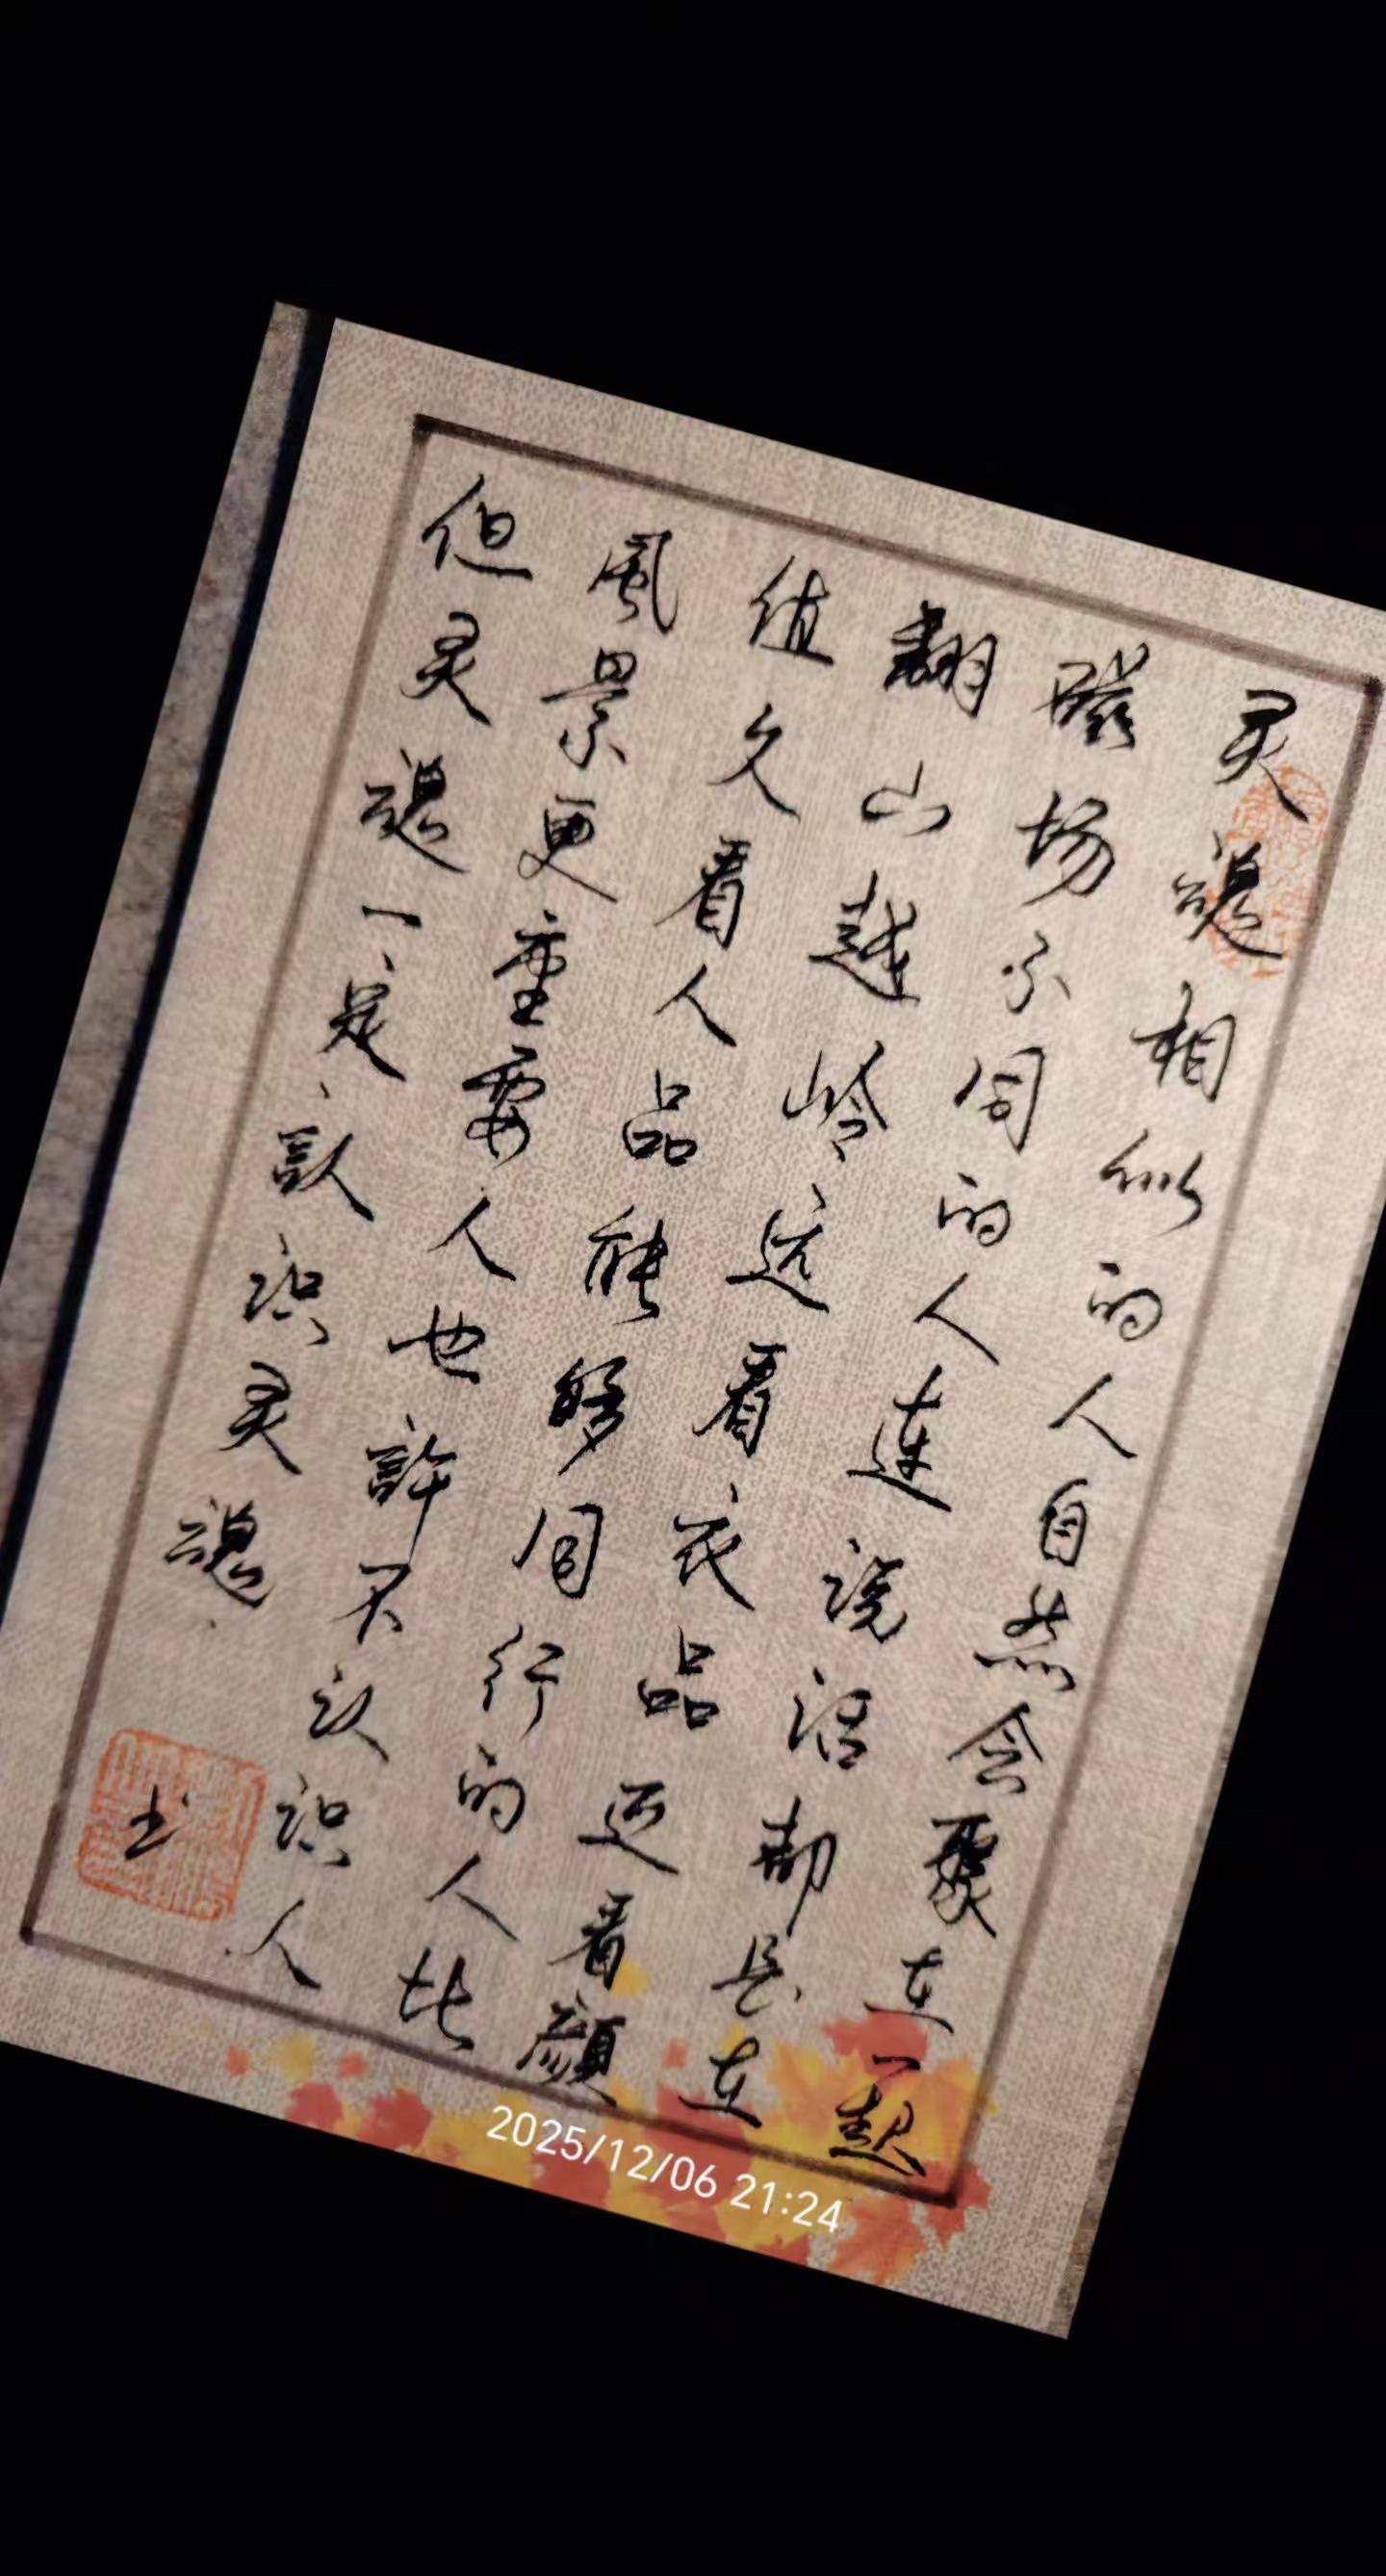 灵魂相似的人自然会聚在一起
磁场不同的人连说话都是在
翻山越岭远看衣品近看顔
值久看人品能够同行的人比
風景更重要人也許不认识人
但灵魂一定認识灵魂
书
2025/12/06 21:24